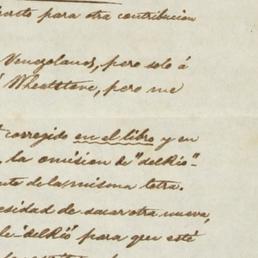 para otra contribucion
Venezolanos, pero solo á
Wheatstone, pero me
corregido en el libro y en
, la omision de "del Rio"-
de la misma letra.
esidad de sacar otra nueva,
"del Rio" para que esté